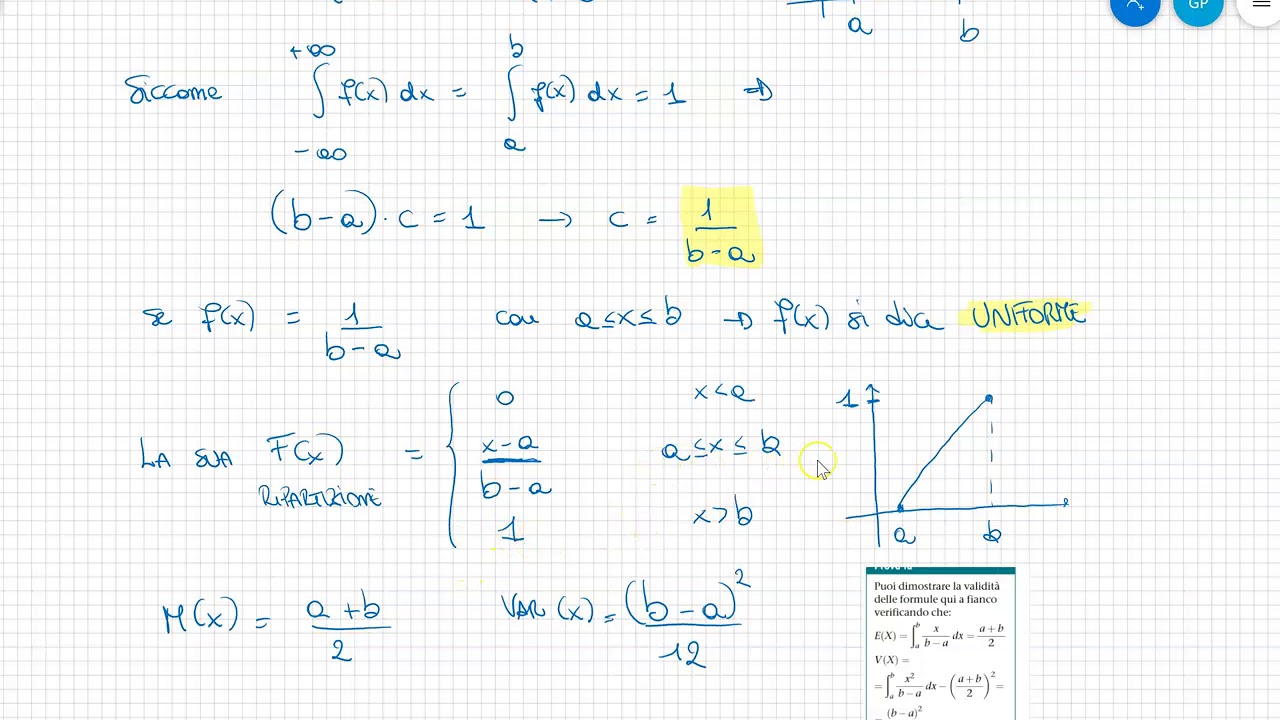 GP
a b
Siccome ∫_{-∞}^{+∞} f(x) dx = ∫_{a}^{b} f(x) dx = 1 ⇒
(b-a)·c = 1 → c = 1/(b-a)
se f(x) = 1/(b-a) con a≤x≤b ⇒ f(x) si dice UNIFORME
LA SUA F(x) = { 0 x<a
(x-a)/(b-a) a≤x≤b
RIPARTIZIONE
1 x>b
1
a b
M(x) = (a+b)/2 VAR(x) = (b-a)²/12
Puoi dimostrare la validità
delle formule qui a fianco
verificando che:
E(X) = ∫_a^b x/(b-a) dx = (a+b)/2
V(X) =
= ∫_a^b x²/(b-a) dx - ((a+b)/2)² =
(b-a)²